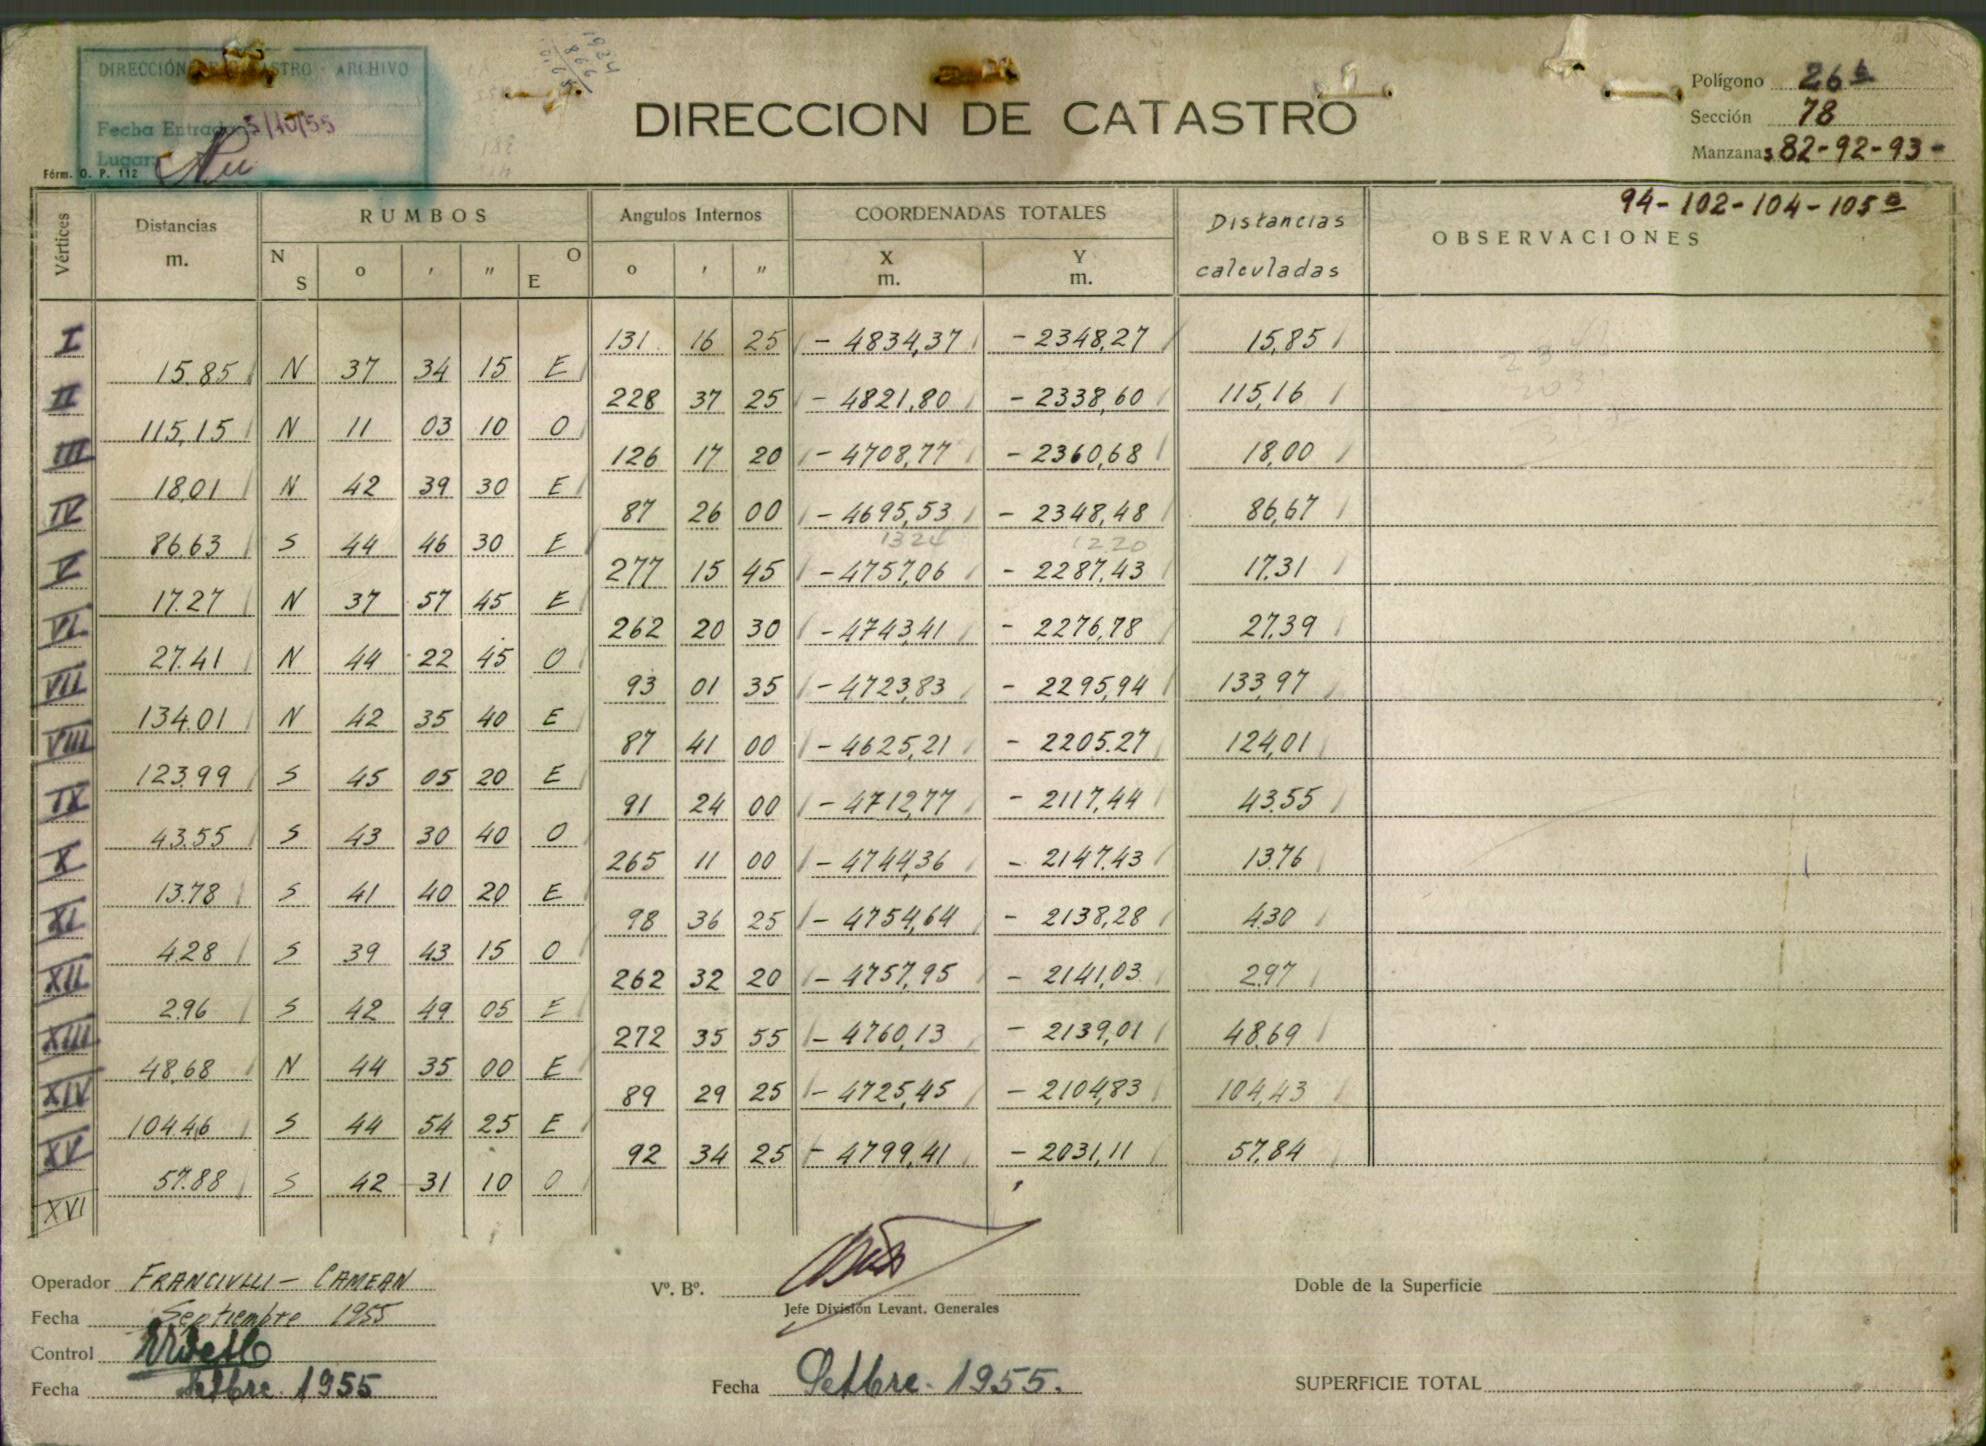 DIRECCIÓN DE CATASTRO - ARCHIVO
Fecha Entrada 5/10/55
Lugar:
Fórm. O. P. 112
DIRECCION DE CATASTRO
Polígono 26 b
Sección 78
Manzanas 82-92-93-
94-102-104-105 a
Vértices Distancias m. RUMBOS Angulos Internos COORDENADAS TOTALES Distancias calculadas OBSERVACIONES
N S o ' " O E o ' " X m. Y m.
I 131 16 25 - 4834,37 - 2348,27 15,85
15.85 N 37 34 15 E
II 228 37 25 - 4821,80 - 2338,60 115,16
115,15 N 11 03 10 O
III 126 17 20 - 4708,77 - 2360,68 18,00
18,01 N 42 39 30 E
IV 87 26 00 - 4695,53 - 2348,48 86,67
1324 1220
86.63 S 44 46 30 E
V 277 15 45 - 4757,06 - 2287,43 17.31
17.27 N 37 57 45 E
VI 262 20 30 - 4743,41 - 2276,78 27.39
27.41 N 44 22 45 O
VII 93 01 35 - 4723,83 - 2295,94 133,97
134.01 N 42 35 40 E
VIII 87 41 00 - 4625,21 - 2205.27 124,01
123.99 S 45 05 20 E
IX 91 24 00 - 4712,77 - 2117,44 43.55
43.55 S 43 30 40 O
X 265 11 00 - 4744,36 - 2147.43 13.76
13.78 S 41 40 20 E
XI 98 36 25 - 4754,64 - 2138,28 4.30
4.28 S 39 43 15 O
XII 262 32 20 - 4757,95 - 2141,03 2.97
2.96 S 42 49 05 E
XIII 272 35 55 - 4760,13 - 2139,01 48.69
48,68 N 44 35 00 E
XIV 89 29 25 - 4725,45 - 2104,83 104,43
104.46 S 44 54 25 E
XV 92 34 25 - 4799,41 - 2031,11 57,84
57.88 S 42 31 10 O
XVI
Operador FRANCIULLI - CAMEAN
Fecha Septiembre 1955
Control
Fecha Setbre. 1955
Vº. Bº.
Jefe División Levant. Generales
Fecha Setbre. 1955.
Doble de la Superficie
SUPERFICIE TOTAL